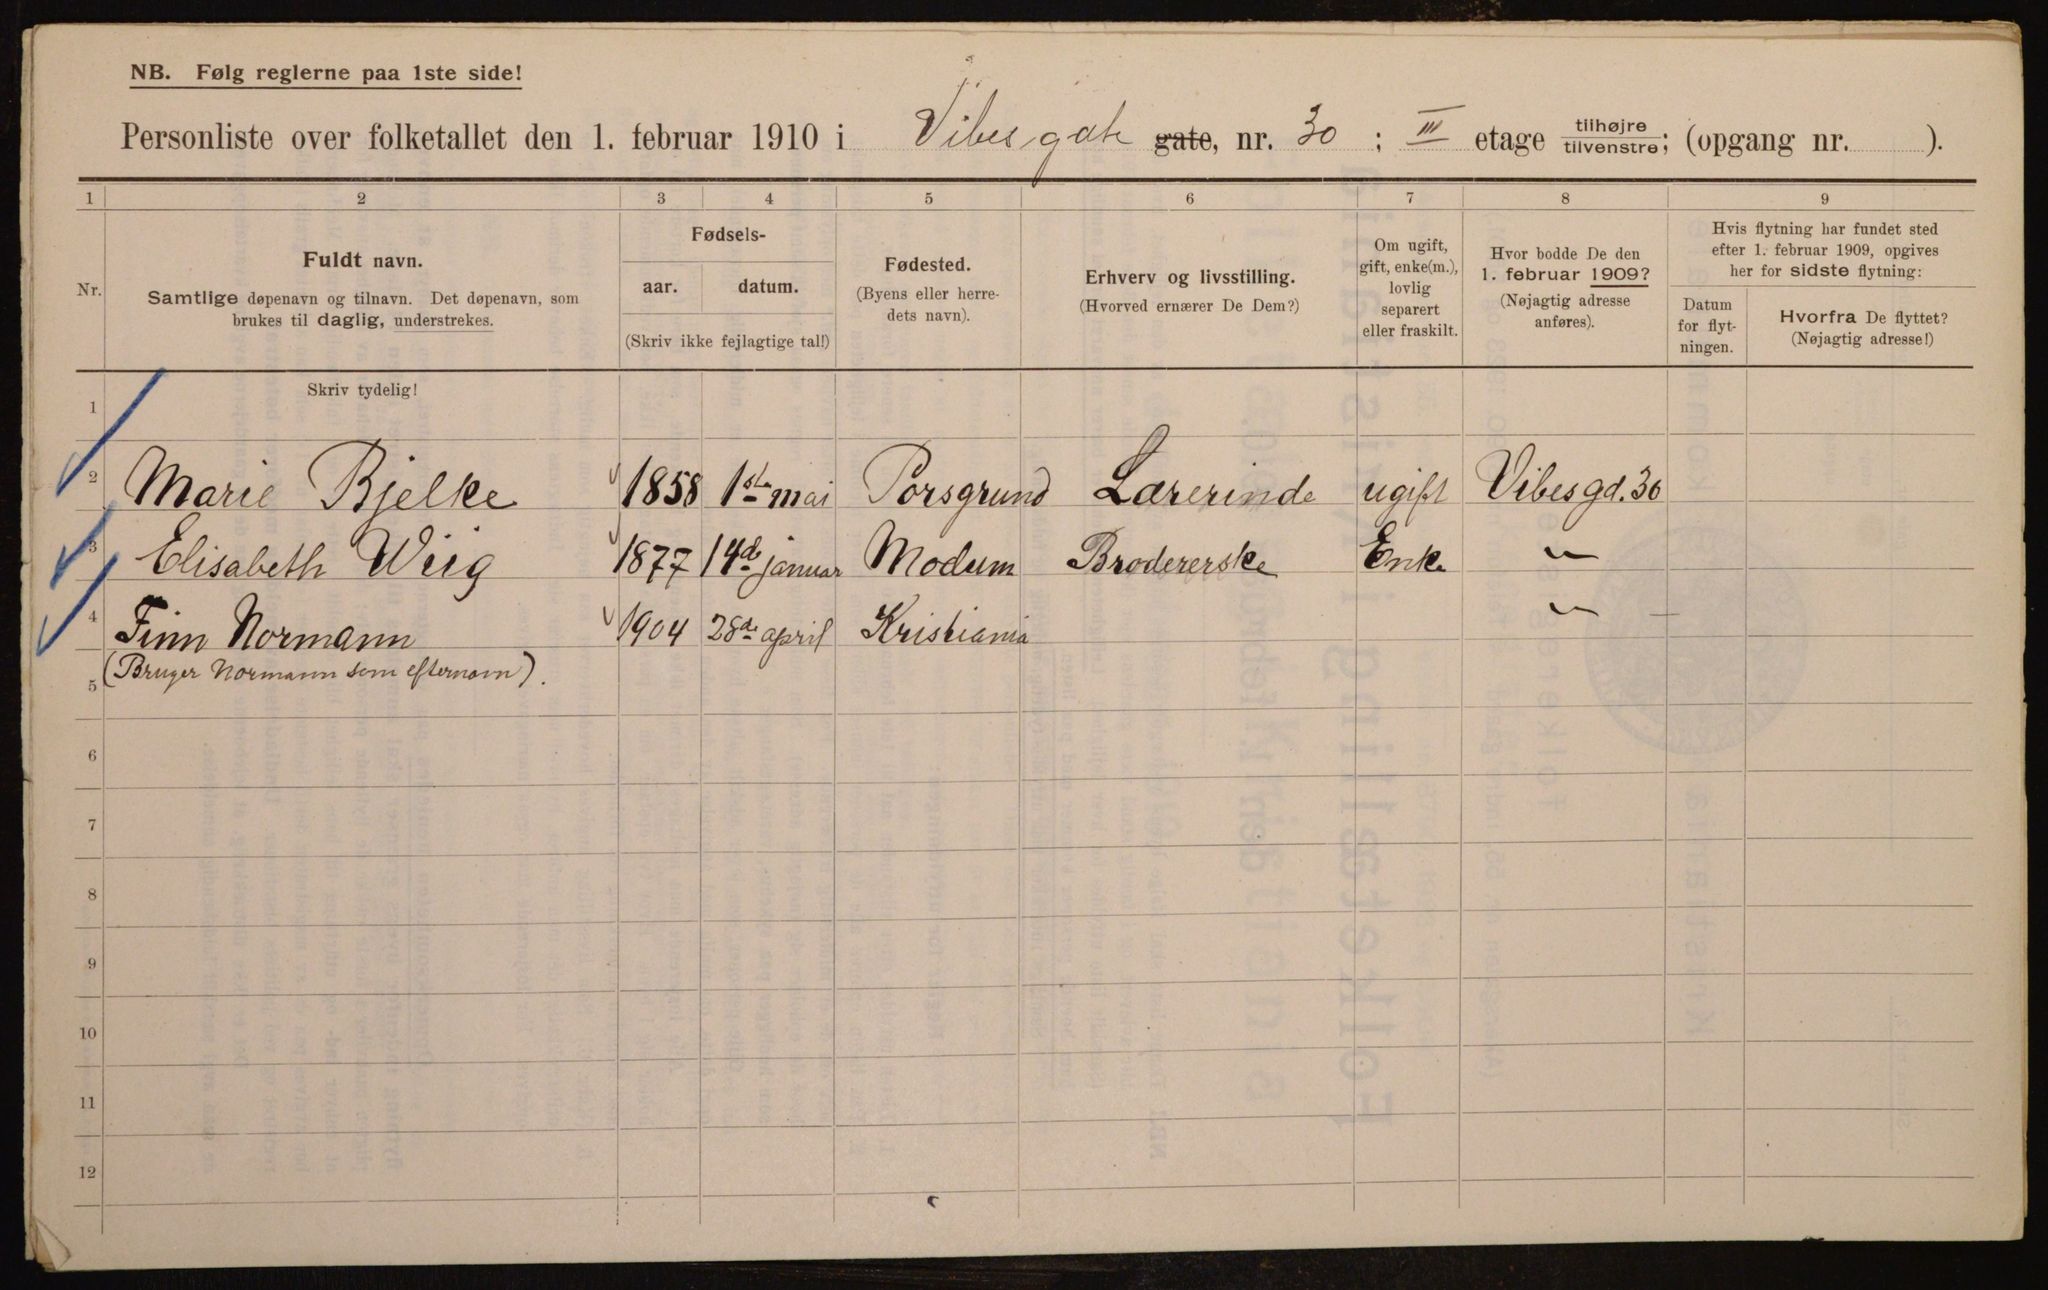 NB. Følg reglerne paa 1ste side!
Personliste over folketallet den 1. februar 1910 i Vibesgate gate, nr. 30 ; III etage tilhøjre/tilvenstre; (opgang nr. ).
1 2 3 4 5 6 7 8 9
Nr.
Fuldt navn.
Samtlige døpenavn og tilnavn. Det døpenavn, som
brukes til daglig, understrekes.
Fødsels-
aar. datum.
(Skriv ikke fejlagtige tal!)
Fødested.
(Byens eller herre-
dets navn).
Erhverv og livsstilling.
(Hvorved ernærer De Dem?)
Om ugift,
gift, enke(m.),
lovlig
separert
eller fraskilt.
Hvor bodde De den
1. februar 1909?
(Nøjagtig adresse
anføres).
Hvis flytning har fundet sted
efter 1. februar 1909, opgives
her for sidste flytning:
Datum
for flyt-
ningen.
Hvorfra De flyttet?
(Nøjagtig adresse!)
Skriv tydelig!
1
2 Marie Bjelke 1858 1ste mai Porsgrund Lærerinde ugift Vibesgd. 30
3 Elisabeth Wiig 1877 14de januar Modum Brodererske Enke "
4 Finn Normann 1904 28de april Kristiania "
5 (Bruger Normann som efternavn).
6
7
8
9
10
11
12